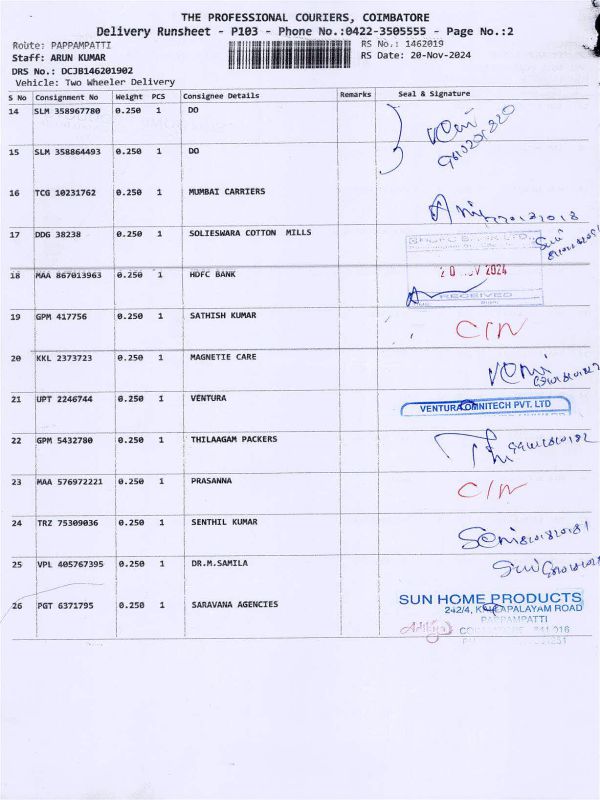 THE PROFESSIONAL COURIERS, COIMBATORE
Delivery Runsheet - P103 - Phone No.:0422-3505555 - Page No.:2
Route: PAPPAMPATTI RS No.: 1462019
Staff: ARUN KUMAR RS Date: 20-Nov-2024
DRS No.: DCJB146201902
Vehicle: Two Wheeler Delivery
S No Consignment No Weight PCS Consignee Details Remarks Seal & Signature
14 SLM 358967780 0.250 1 DO
15 SLM 358864493 0.250 1 DO
16 TCG 10231762 0.250 1 MUMBAI CARRIERS
17 DDG 38238 0.250 1 SOLIESWARA COTTON MILLS
18 MAA 867013963 0.250 1 HDFC BANK 20 NOV 2024
RECEIVED
19 GPM 417756 0.250 1 SATHISH KUMAR C/N
20 KKL 2373723 0.250 1 MAGNETIE CARE
21 UPT 2246744 0.250 1 VENTURA VENTURA OMNITECH PVT. LTD
22 GPM 5432780 0.250 1 THILAAGAM PACKERS
23 MAA 576972221 0.250 1 PRASANNA C/N
24 TRZ 75309036 0.250 1 SENTHIL KUMAR
25 VPL 405767395 0.250 1 DR.M.SAMILA
26 PGT 6371795 0.250 1 SARAVANA AGENCIES SUN HOME PRODUCTS
242/4, ROAD
PAPPAMPATTI